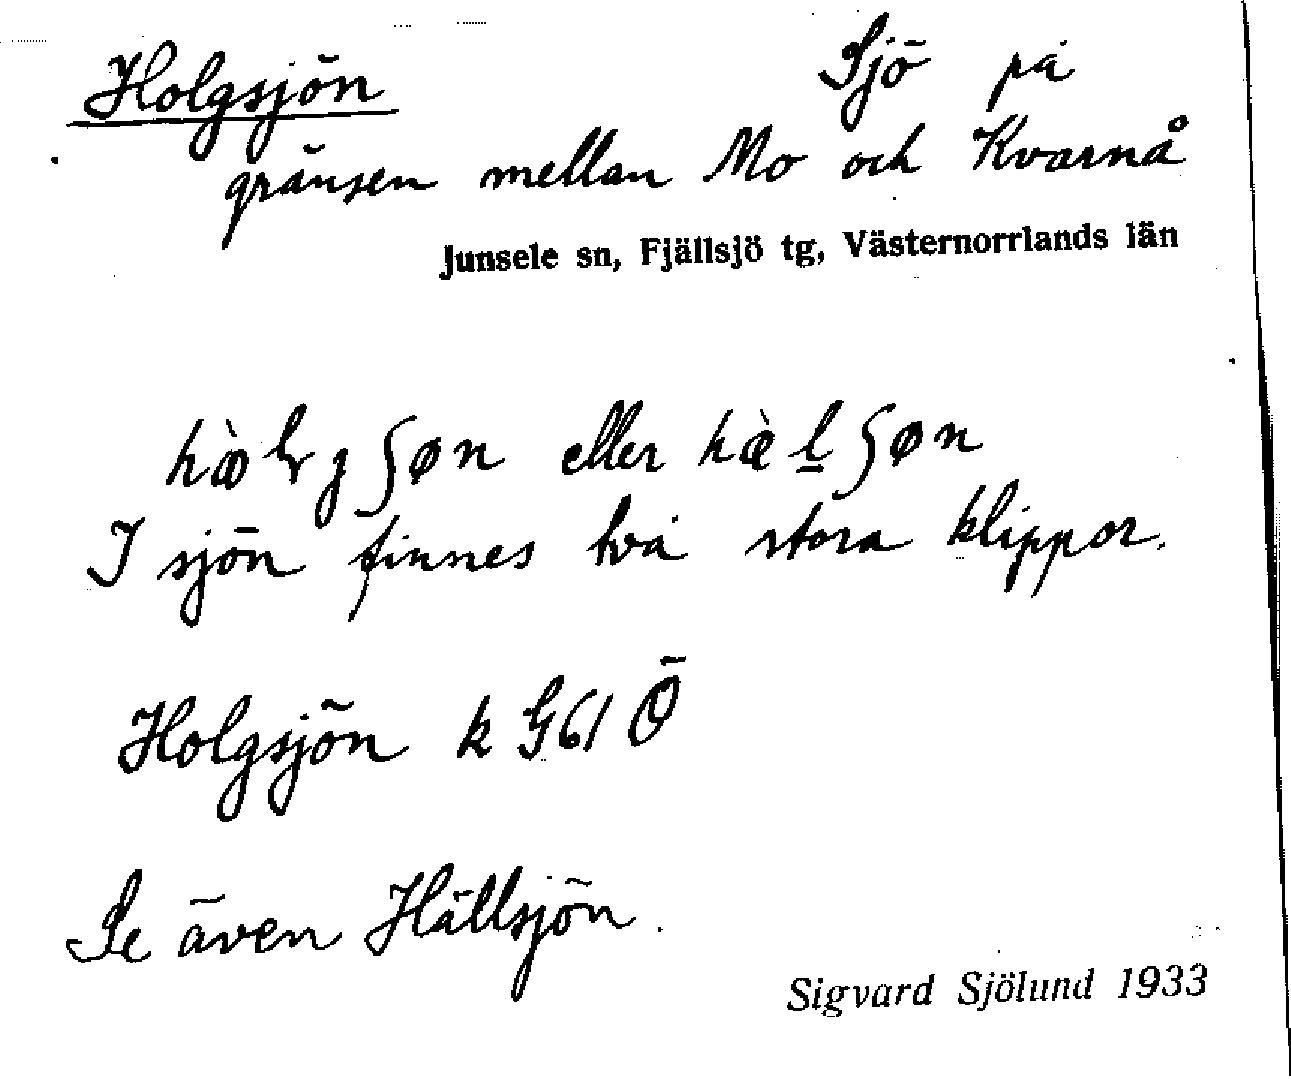 Holgsjön Sjö på
gränsen mellan Mo och Kvarnå
Junsele sn, Fjällsjö tg, Västernorrlands län
eller
I sjön finnes två stora klippor.
Holgsjön k G61 Ö
Se även Hällsjön.
Sigvard Sjölund 1933